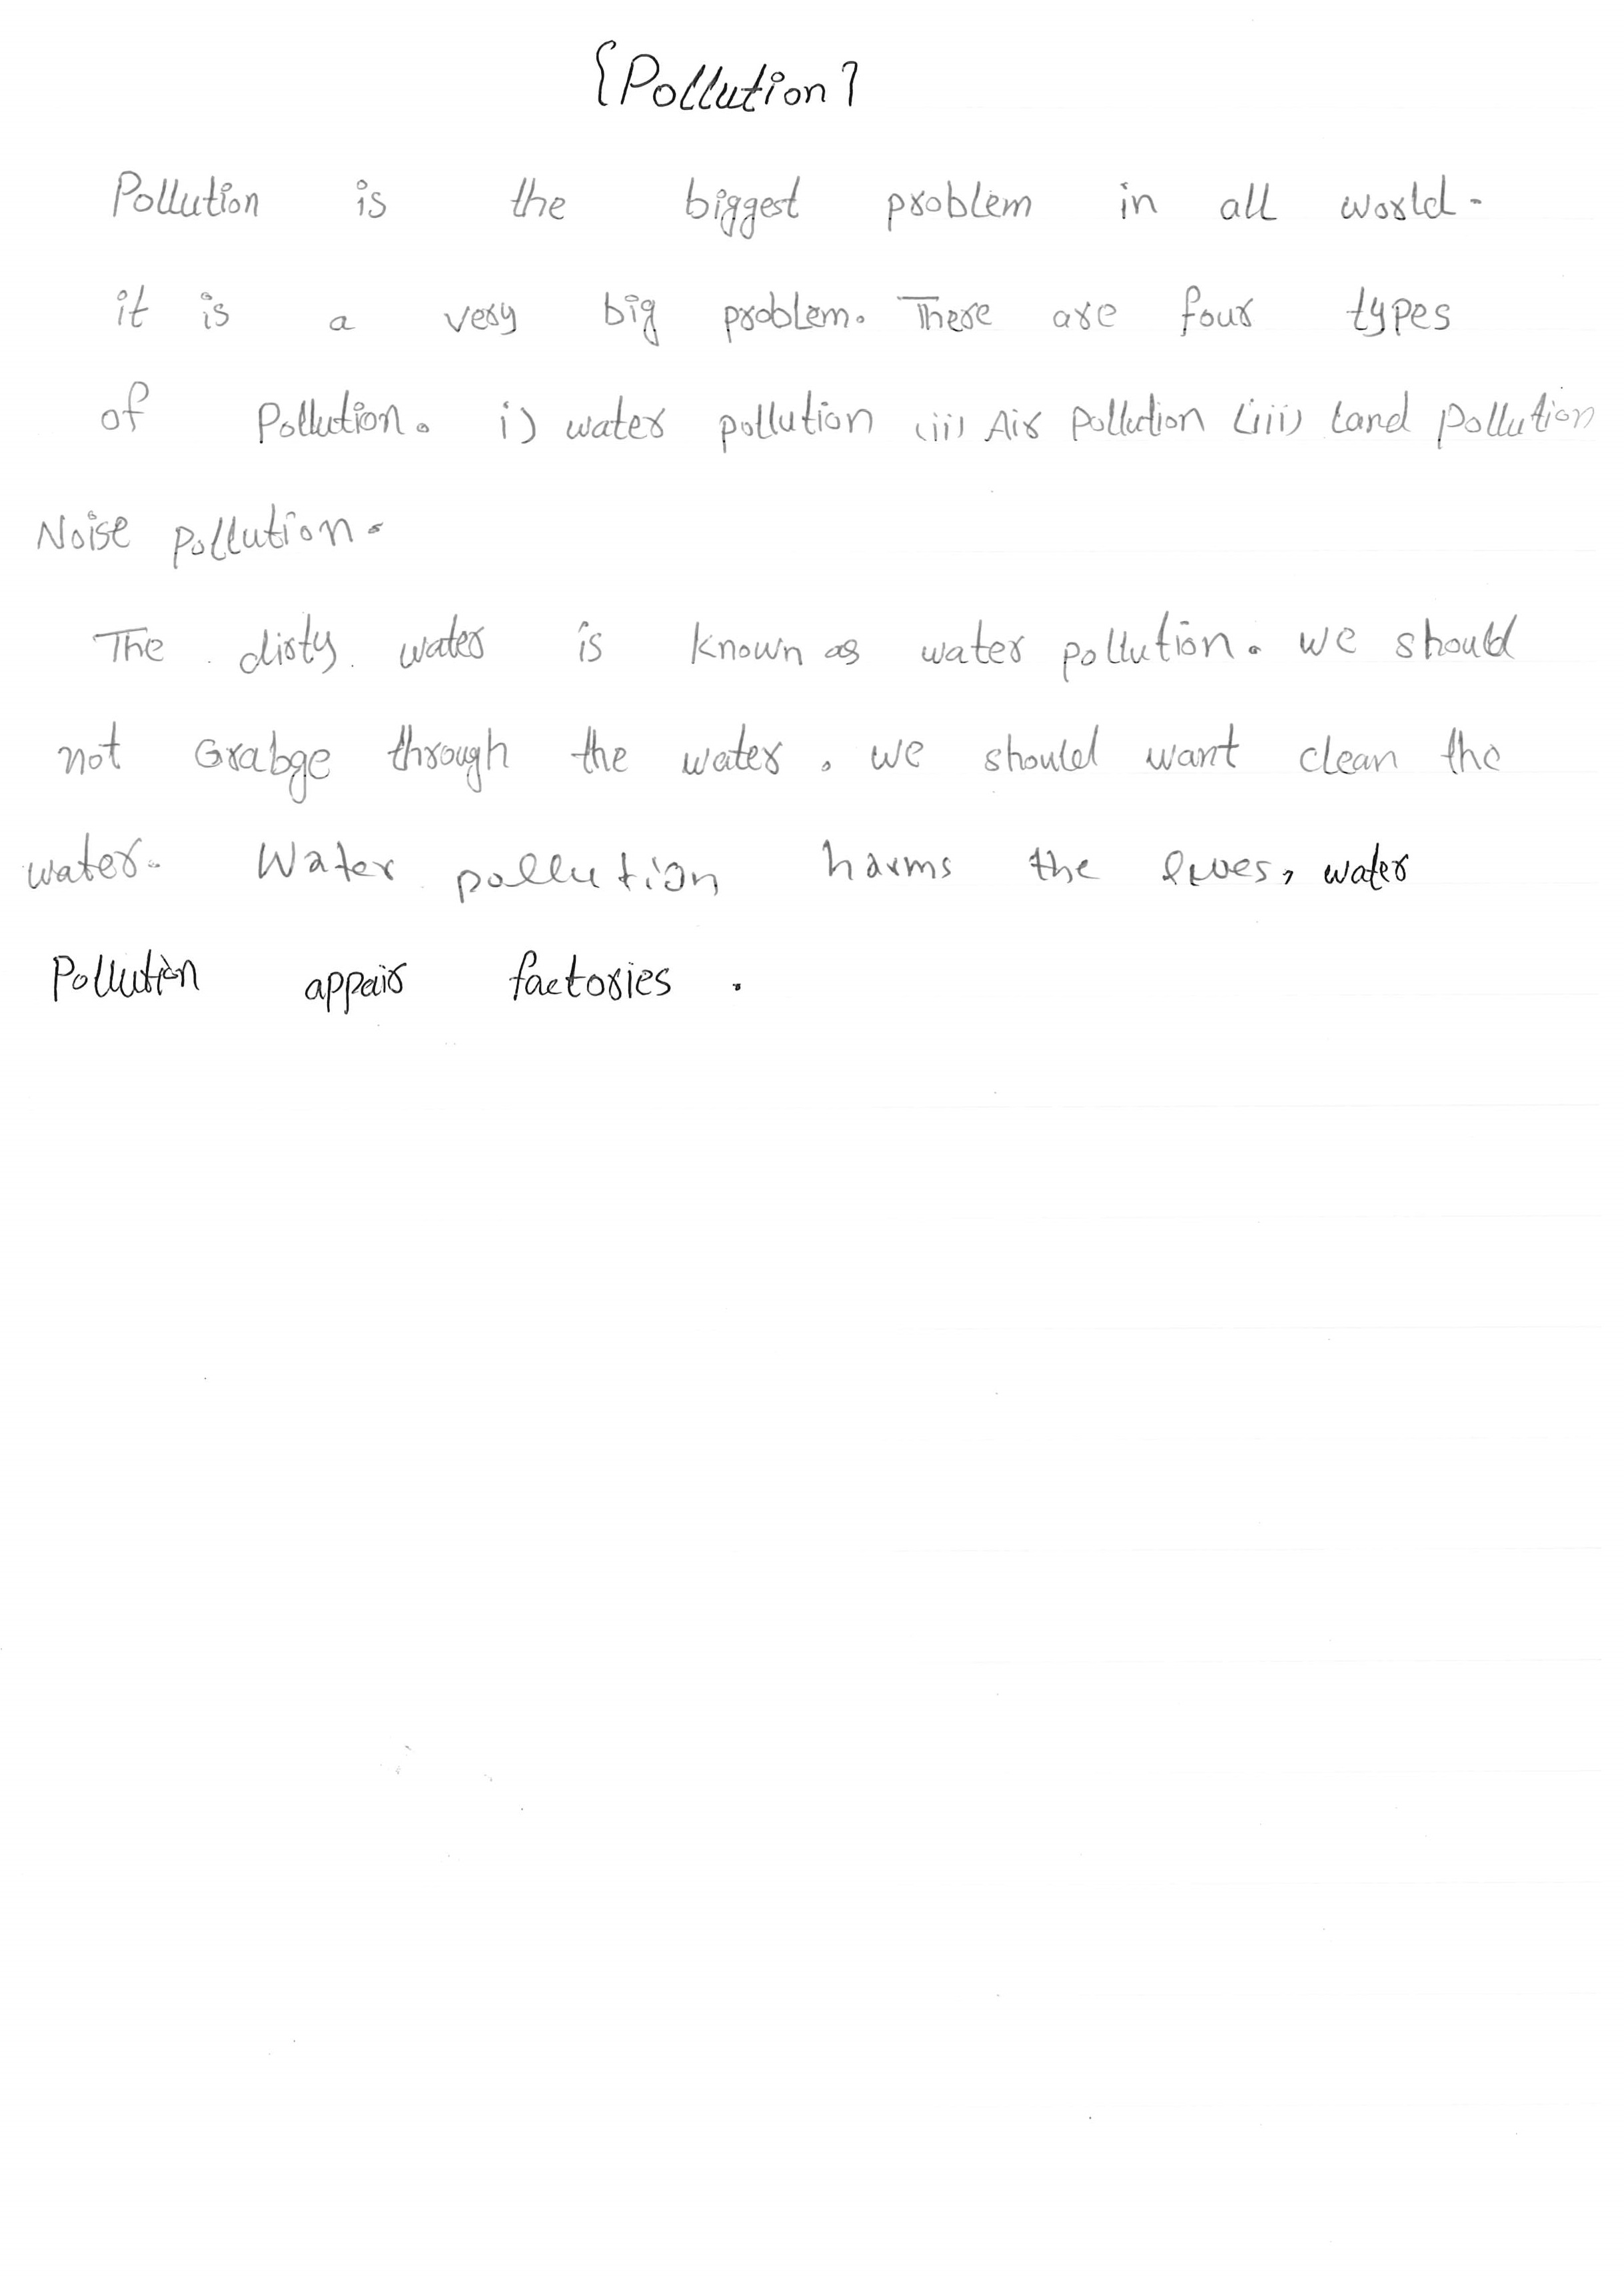 {Pollution}
Pollution is the biggest problem in all world.
it is a very big problem. There are four types
of Pollution. i) water pollution (ii) Air Pollution (iii) Land Pollution
Noise pollution.
The dirty water is known as water pollution. we should
not Grabge through the water. we should want clean the
water. Water pollution harms the lives, water
Pollution appair factories.